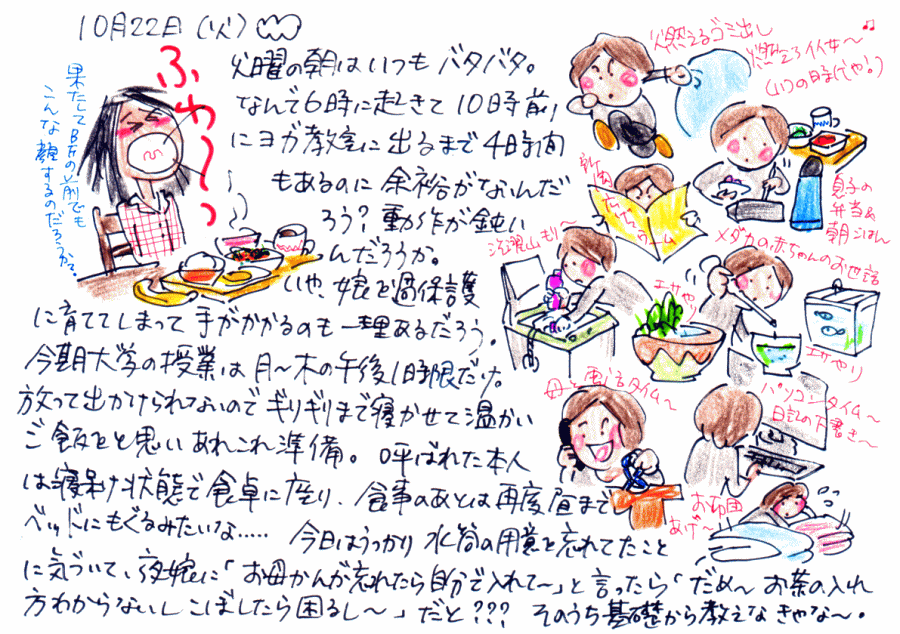 10月22日(火)
火曜の朝はいつもバタバタ。
なんで6時に起きて10時前
にヨガ教室に出るまで4時間
もあるのに余裕がないんだ
ろう?動作が鈍い
んだろうか。
いや、娘を過保護
に育ててしまって手がかかるのも一理あるだろう。
今期大学の授業は月〜木の午後1時限だけ。
放って出かけられないのでギリギリまで寝かせて温かい
ご飯をと思いあれこれ準備。呼ばれた本人
は寝呆け状態で食卓に座り、食事のあとは再度昼まで
ベッドにもぐるみたいな.....今日はうっかり水筒の用意を忘れてたこと
に気づいて、娘に「お母かんが忘れたら自分で入れて〜」と言ったら「だめ〜お茶の入れ
方わからないしこぼしたら困るし〜」だと???そのうち基礎から教えなきゃな〜。
ふわ〜っ
果たしてB氏の前でも
こんな顔するのだろうか。
燃えるゴミ出し
燃えろイイ女〜
(いつの時代や!)
息子の
弁当&
朝ごはん
新聞
洗濯山もり〜
メダカの赤ちゃんのお世話
エサやり
エサやり
母と電話タイム〜
パソコンタイム〜
日記の下書き〜
お布団
あげ〜